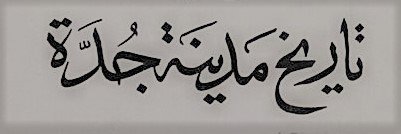 تاريخ مَدينَة جُدَّة